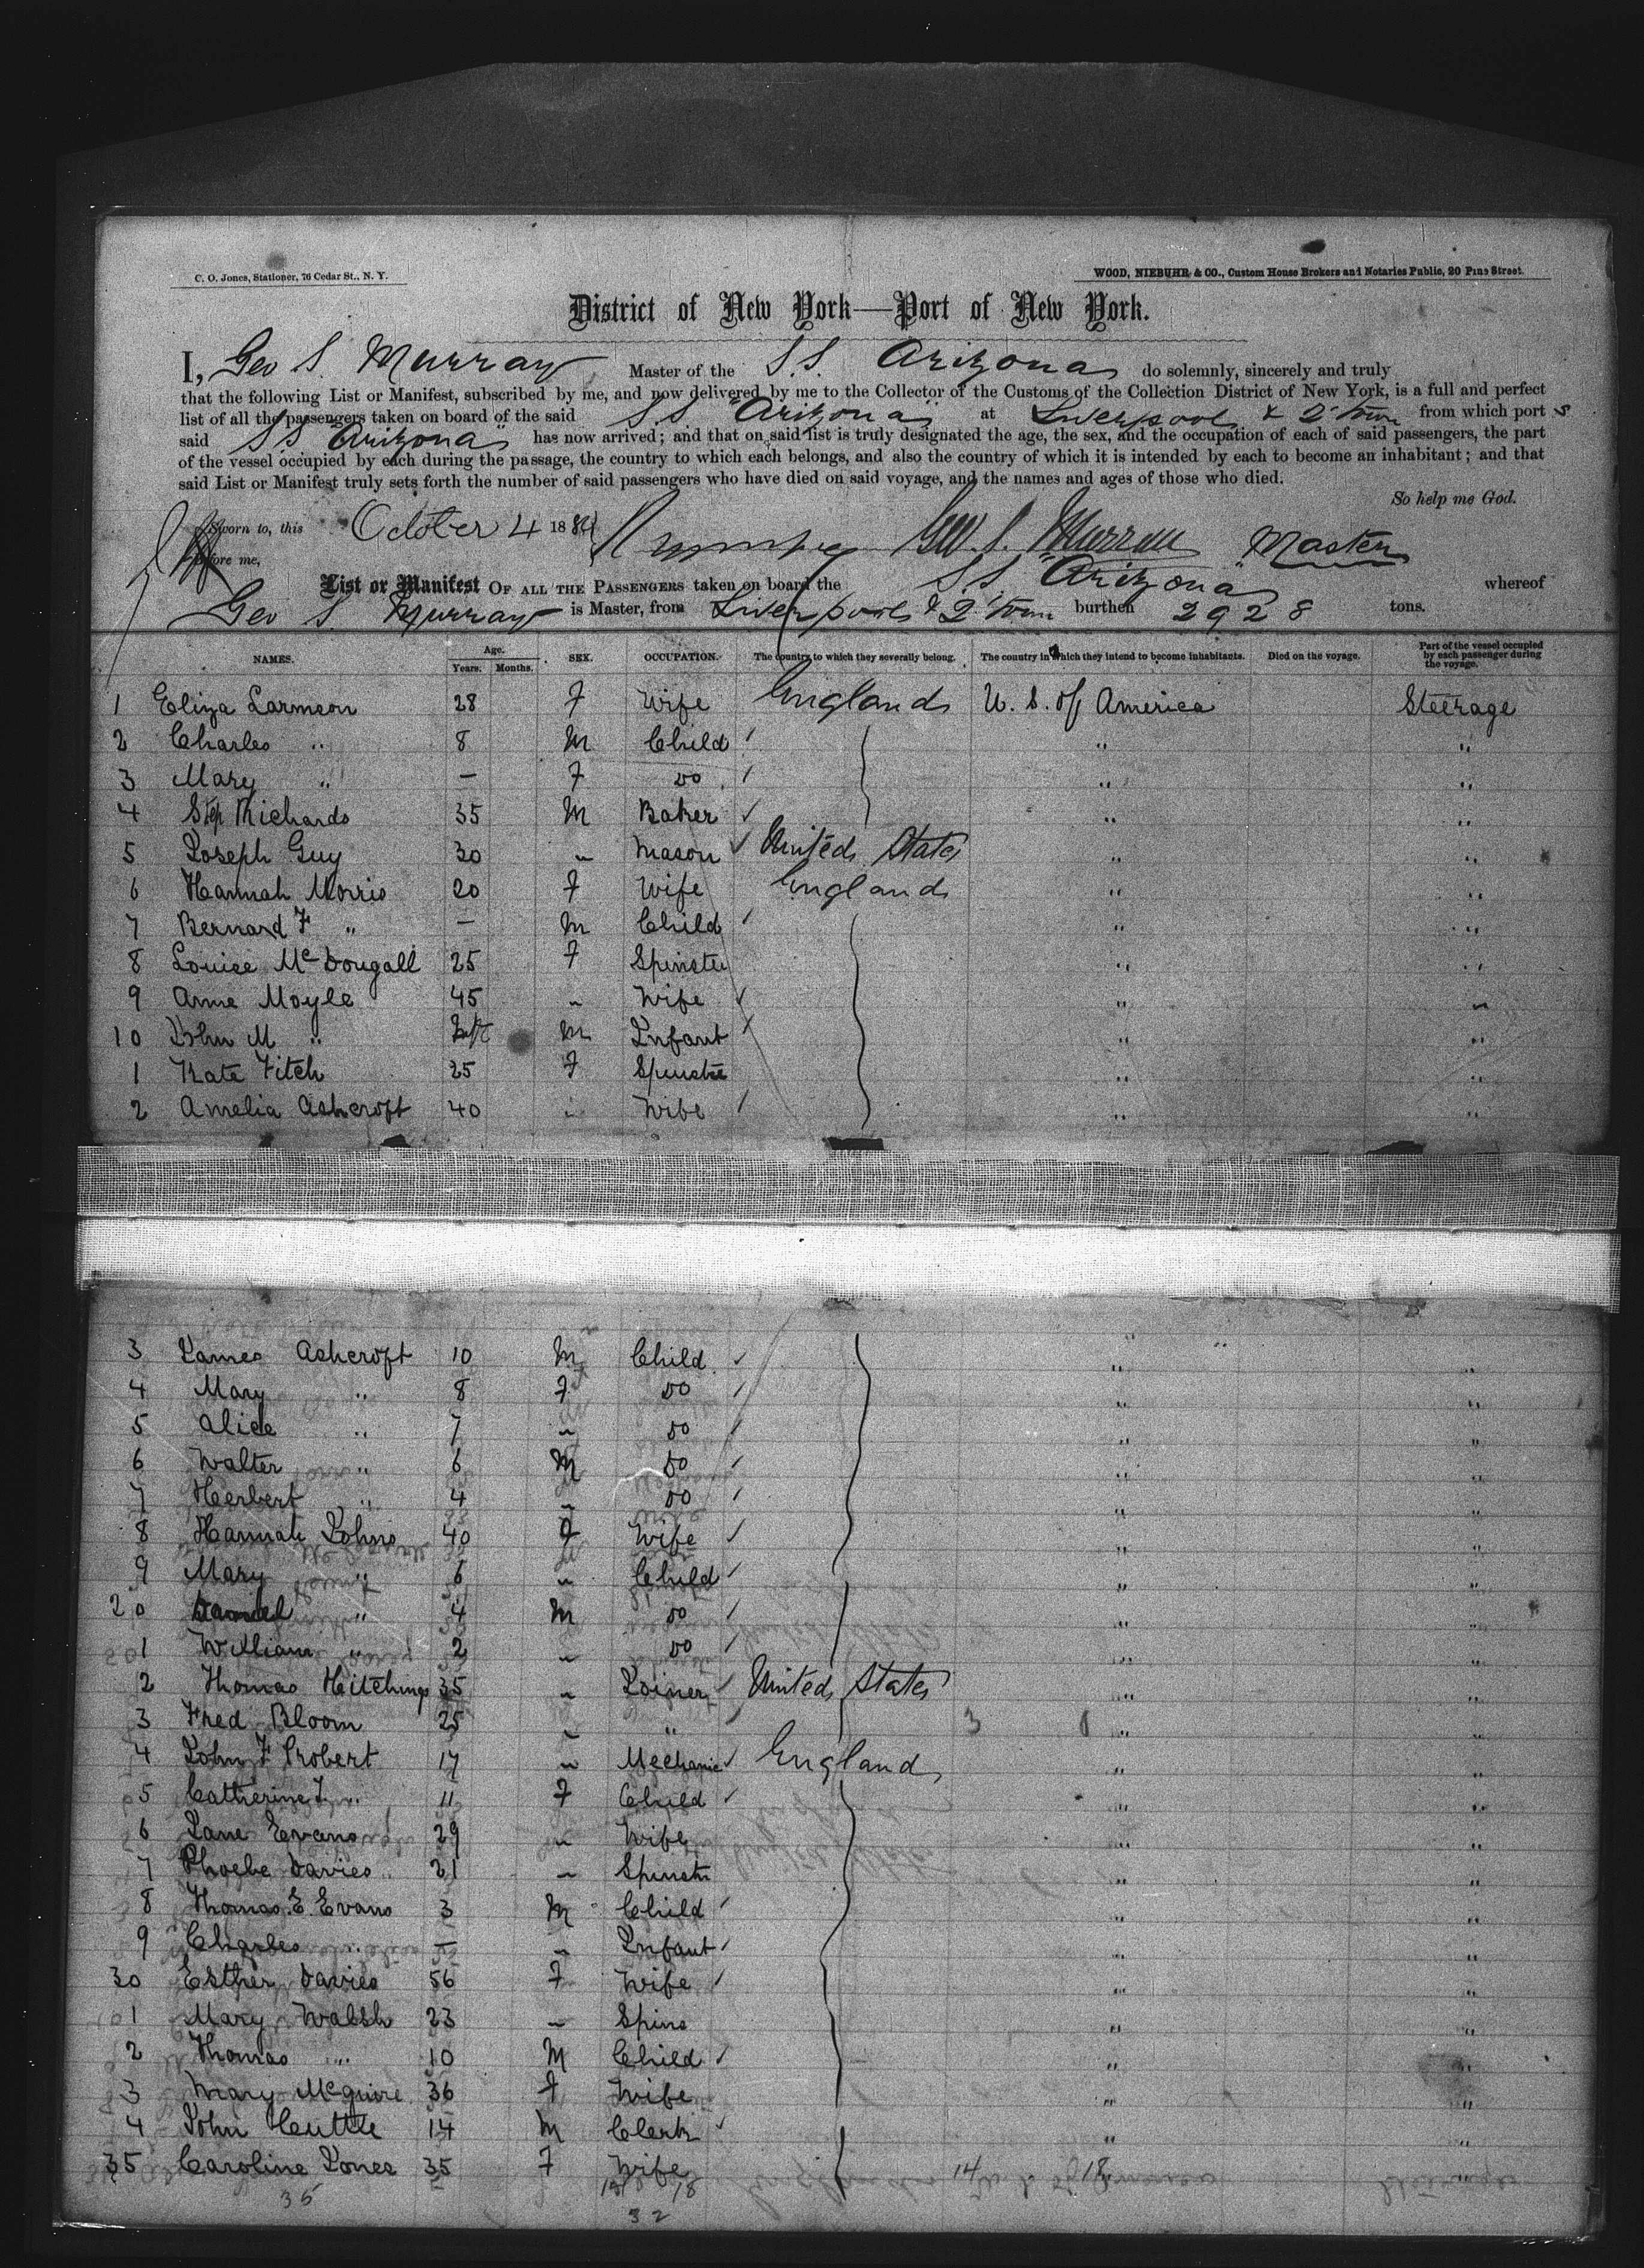 C. O. Jones, Stationer, 76 Cedar St., N. Y.
WOOD, NIEBUHR & CO., Custom House Brokers and Notaries Public, 20 Pine Street.
District of New York—Port of New York.
I, Geo S. Murray Master of the S.S. Arizona do solemnly, sincerely and truly
that the following List or Manifest, subscribed by me, and now delivered by me to the Collector of the Customs of the Collection District of New York, is a full and perfect
list of all the passengers taken on board of the said S.S. "Arizona" at Liverpool & Q. Town from which port s
said S.S. "Arizona" has now arrived; and that on said list is truly designated the age, the sex, and the occupation of each of said passengers, the part
of the vessel occupied by each during the passage, the country to which each belongs, and also the country of which it is intended by each to become an inhabitant; and that
said List or Manifest truly sets forth the number of said passengers who have died on said voyage, and the names and ages of those who died.
So help me God.
Sworn to, this October 4 188
Before me, Geo. S. Murray Master
List or Manifest OF ALL THE PASSENGERS taken on board the S.S. "Arizona" whereof
Geo S. Murray is Master, from Liverpool & Q. Town burthen 2928 tons.
NAMES. Age. Years. Months. SEX. OCCUPATION. The country to which they severally belong. The country in which they intend to become inhabitants. Died on the voyage. Part of the vessel occupied by each passenger during the voyage.
1 Eliza Larmson 28 F Wife England U. S. of America Steerage
2 Charles " 8 M Child " "
3 Mary " — F do " "
4 Step Richards 35 M Baker " "
5 Joseph Guy 30 " Mason United States " "
6 Hannah Morris 20 F Wife England " "
7 Bernard F " — M Child " "
8 Louise McDougall 25 F Spinster " "
9 Anne Moyle 45 " Wife " "
10 John M " Inft M Infant " "
1 Kate Fitch 25 F Spinster " "
2 Amelia Ashcroft 40 " Wife " "
3 James Ashcroft 10 M Child " "
4 Mary " 8 F do " "
5 Alice " 7 " do " "
6 Walter " 6 M do " "
7 Herbert " 4 " do " "
8 Hannah Johns 40 F Wife " "
9 Mary " 6 " Child " "
20 Daniel " 4 M do " "
1 William " 2 " do " "
2 Thomas Hitchings 35 " Joiner United States " "
3 Fred Bloom 25 " " 3 " "
4 John F Probert 17 " Mechanic England " "
5 Catherine J. " 11 F Child " "
6 Jane Evans 29 " Wife " "
7 Phoebe Davies 21 " Spinstr " "
8 Thomas. E. Evans 3 M Child " "
9 Charles " — " Infant " "
30 Esther Davies 56 F Wife " "
1 Mary Walsh 23 " Spins " "
2 Thomas " 10 M Child " "
3 Mary McGuire 36 F Wife " "
4 John Huttle 14 M Clerk " "
35 Caroline Jones 35 F Wife 14 18 "
35 18
32